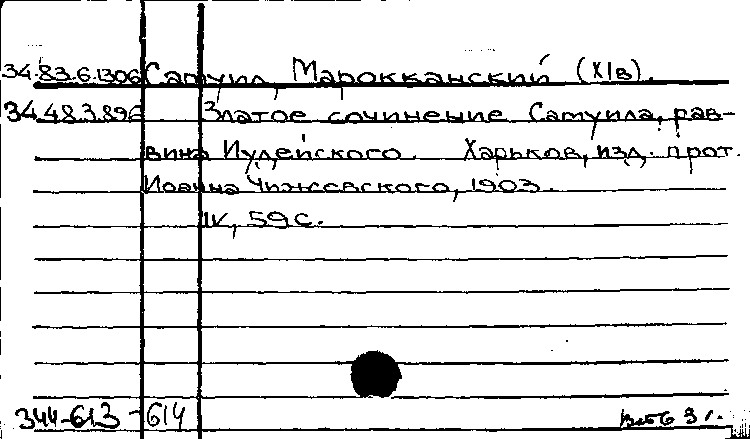 34.83.6.1306 Самуил, Марокканский (XIв).
34.48.3.896 Златое сочинение Самуила, рав-
вина Иудейского. Харьков, изд. прот.
Иоанна Чижевского, 1903.
IV, 59 с.
344-613-614